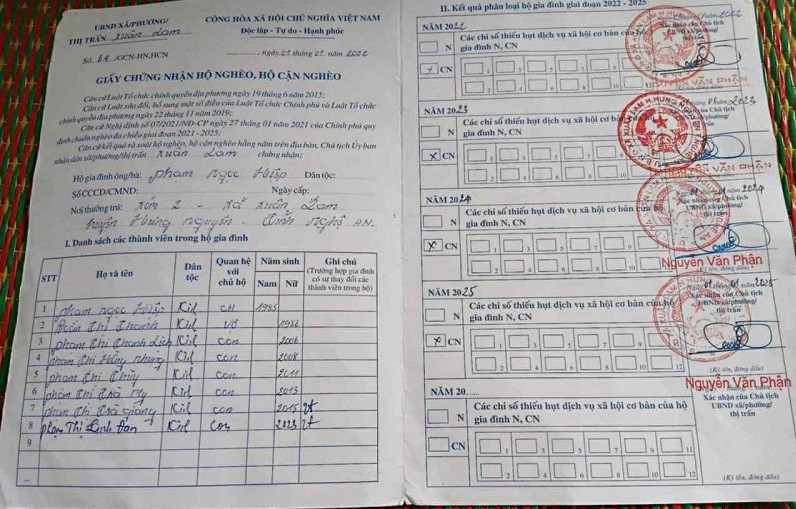 UBND XÃ/PHƯỜNG/
THỊ TRẤN Xuân Lam
CỘNG HÒA XÃ HỘI CHỦ NGHĨA VIỆT NAM
Độc lập - Tự do - Hạnh phúc
Số: 68 /GCN-HN.HCN
, ngày 01 tháng 01 năm 2022
GIẤY CHỨNG NHẬN HỘ NGHÈO, HỘ CẬN NGHÈO
Căn cứ Luật Tổ chức chính quyền địa phương ngày 19 tháng 6 năm 2015;
Căn cứ Luật sửa đổi, bổ sung một số điều của Luật Tổ chức Chính phủ và Luật Tổ chức
chính quyền địa phương ngày 22 tháng 11 năm 2019;
Căn cứ Nghị định số 07/2021/NĐ-CP ngày 27 tháng 01 năm 2021 của Chính phủ quy
định chuẩn nghèo đa chiều giai đoạn 2021 - 2025;
Căn cứ kết quả rà soát hộ nghèo, hộ cận nghèo hằng năm trên địa bàn, Chủ tịch Ủy ban
nhân dân xã/phường/thị trấn Xuân Lam chứng nhận:
Hộ gia đình ông/bà: Phạm Ngọc Hiệp Dân tộc:
Số CCCD/CMND: Ngày cấp:
Nơi thường trú: Xóm 2 - Xã Xuân Lam
huyện Hưng Nguyên - tỉnh Nghệ An.
I. Danh sách các thành viên trong hộ gia đình
STT Họ và tên Dân tộc Quan hệ với chủ hộ Năm sinh Nam Nữ Ghi chú (Trường hợp gia đình có sự thay đổi các thành viên trong hộ)
1 Phạm Ngọc Hiệp Kinh CH 1985
2 Thị Thanh Kinh Vợ 1986
3 Phạm Thị Thanh Lịch Kinh Con 2006
4 Phạm Thị Hồng Nhung Kinh Con 2008
5 Phạm Thị Thùy Kinh Con 2011
6 Phạm Thị Trà My Kinh Con 2013
7 Phạm Thị Trà Giang Kinh Con 2015
8 Phạm Thị Linh Đan Kinh Con 2023
9
...
II. Kết quả phân loại hộ gia đình giai đoạn 2022 - 2025
NĂM 2022
N Các chỉ số thiếu hụt dịch vụ xã hội cơ bản của hộ
gia đình N, CN
x CN
NGUYỄN VĂN PHẬN
NĂM 2023
N Các chỉ số thiếu hụt dịch vụ xã hội cơ bản
gia đình N, CN
x CN
NGUYỄN VĂN PHẬN
NĂM 2024
Xác nhận của Chủ tịch
UBND xã/phường/
thị trấn
N Các chỉ số thiếu hụt dịch vụ xã hội cơ bản của hộ
gia đình N, CN
x CN
Nguyễn Văn Phận
NĂM 2025
Xác nhận của Chủ tịch
UBND xã/phường/
thị trấn
N Các chỉ số thiếu hụt dịch vụ xã hội cơ bản của hộ
gia đình N, CN
x CN
1 3 5 7 9 11
2 4 6 8 10 12
(Ký tên, đóng dấu)
Nguyễn Văn Phận
NĂM 20......
Xác nhận của Chủ tịch
UBND xã/phường/
thị trấn
N Các chỉ số thiếu hụt dịch vụ xã hội cơ bản của hộ
gia đình N, CN
CN
1 3 5 7 9 11
2 4 6 8 10 12
(Ký tên, đóng dấu)